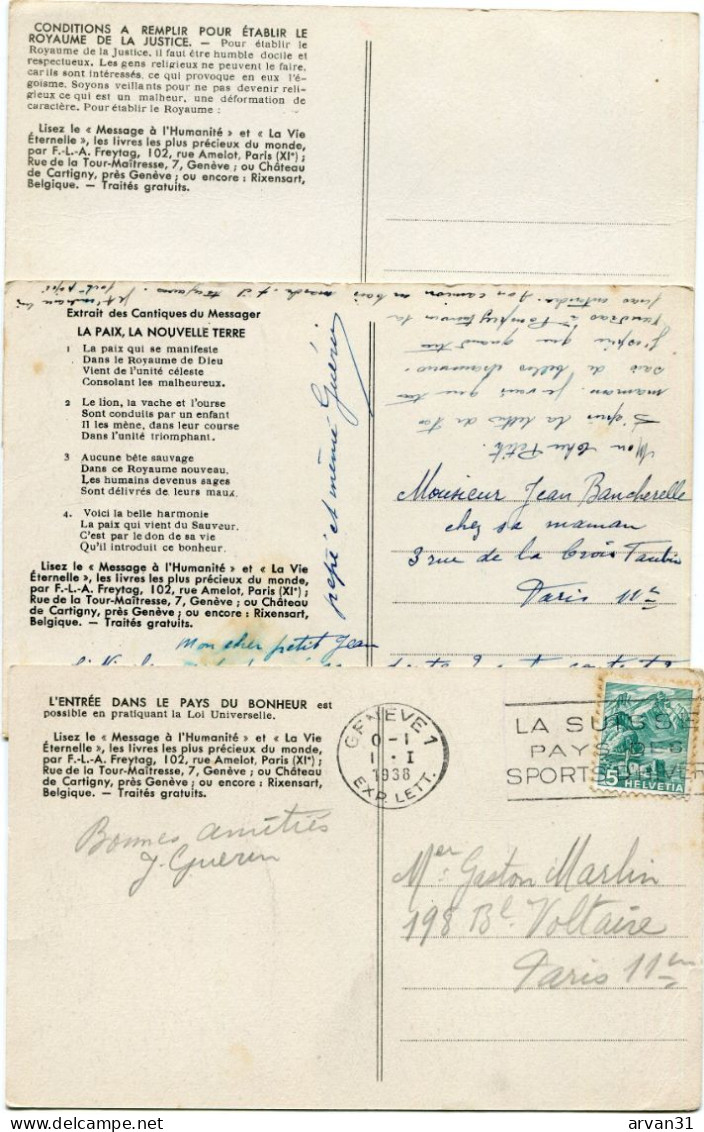 CONDITIONS A REMPLIR POUR ÉTABLIR LE
ROYAUME DE LA JUSTICE. — Pour établir le
Royaume de la Justice, il faut être humble docile et
respectueux. Les gens religieux ne peuvent le faire,
car ils sont intéressés, ce qui provoque en eux l'é-
goïsme. Soyons veillants pour ne pas devenir reli-
gieux ce qui est un malheur, une déformation de
caractère. Pour établir le Royaume :
Lisez le « Message à l'Humanité » et « La Vie
Éternelle », les livres les plus précieux du monde,
par F.-L.-A. Freytag, 102, rue Amelot, Paris (XIe) ;
Rue de la Tour-Maîtresse, 7, Genève ; ou Château
de Cartigny, près Genève ; ou encore : Rixensart,
Belgique. — Traités gratuits.
Extrait des Cantiques du Messager
LA PAIX, LA NOUVELLE TERRE
1 La paix qui se manifeste
Dans le Royaume de Dieu
Vient de l'unité céleste
Consolant les malheureux.
2 Le lion, la vache et l'ourse
Sont conduits par un enfant
Il les mène, dans leur course
Dans l'unité triomphant.
3 Aucune bête sauvage
Dans ce Royaume nouveau,
Les humains devenus sages
Sont délivrés de leurs maux.
4. Voici la belle harmonie
La paix qui vient du Sauveur.
C'est par le don de sa vie
Qu'il introduit ce bonheur.
Lisez le « Message à l'Humanité » et « La Vie
Éternelle », les livres les plus précieux du monde,
par F.-L.-A. Freytag, 102, rue Amelot, Paris (XIe) ;
Rue de la Tour-Maîtresse, 7, Genève ; ou Château
de Cartigny, près Genève ; ou encore : Rixensart,
Belgique. — Traités gratuits.
Mon cher petit Jean
pépé et mémé Guérin
Mon cher Petit.
maman. je vois que tu
j'espère que quand tu
Monsieur Jean Bancherelle
chez sa maman
3 rue de la Croix Faubin
Paris 11e
L'ENTRÉE DANS LE PAYS DU BONHEUR est
possible en pratiquant la Loi Universelle.
Lisez le « Message à l'Humanité » et « La Vie
Éternelle », les livres les plus précieux du monde,
par F.-L.-A. Freytag, 102, rue Amelot, Paris (XIe) ;
Rue de la Tour-Maîtresse, 7, Genève ; ou Château
de Cartigny, près Genève ; ou encore : Rixensart,
Belgique. — Traités gratuits.
GENÈVE 1
0-1
1.I
1938
EXP. LETT.
LA SUISSE
PAYS DES
SPORTS D'HIVER
5 HELVETIA
Bonnes amitiés
J. Guerin
Mer Gaston Marlin
198 Bd Voltaire
Paris 11em
arvan31